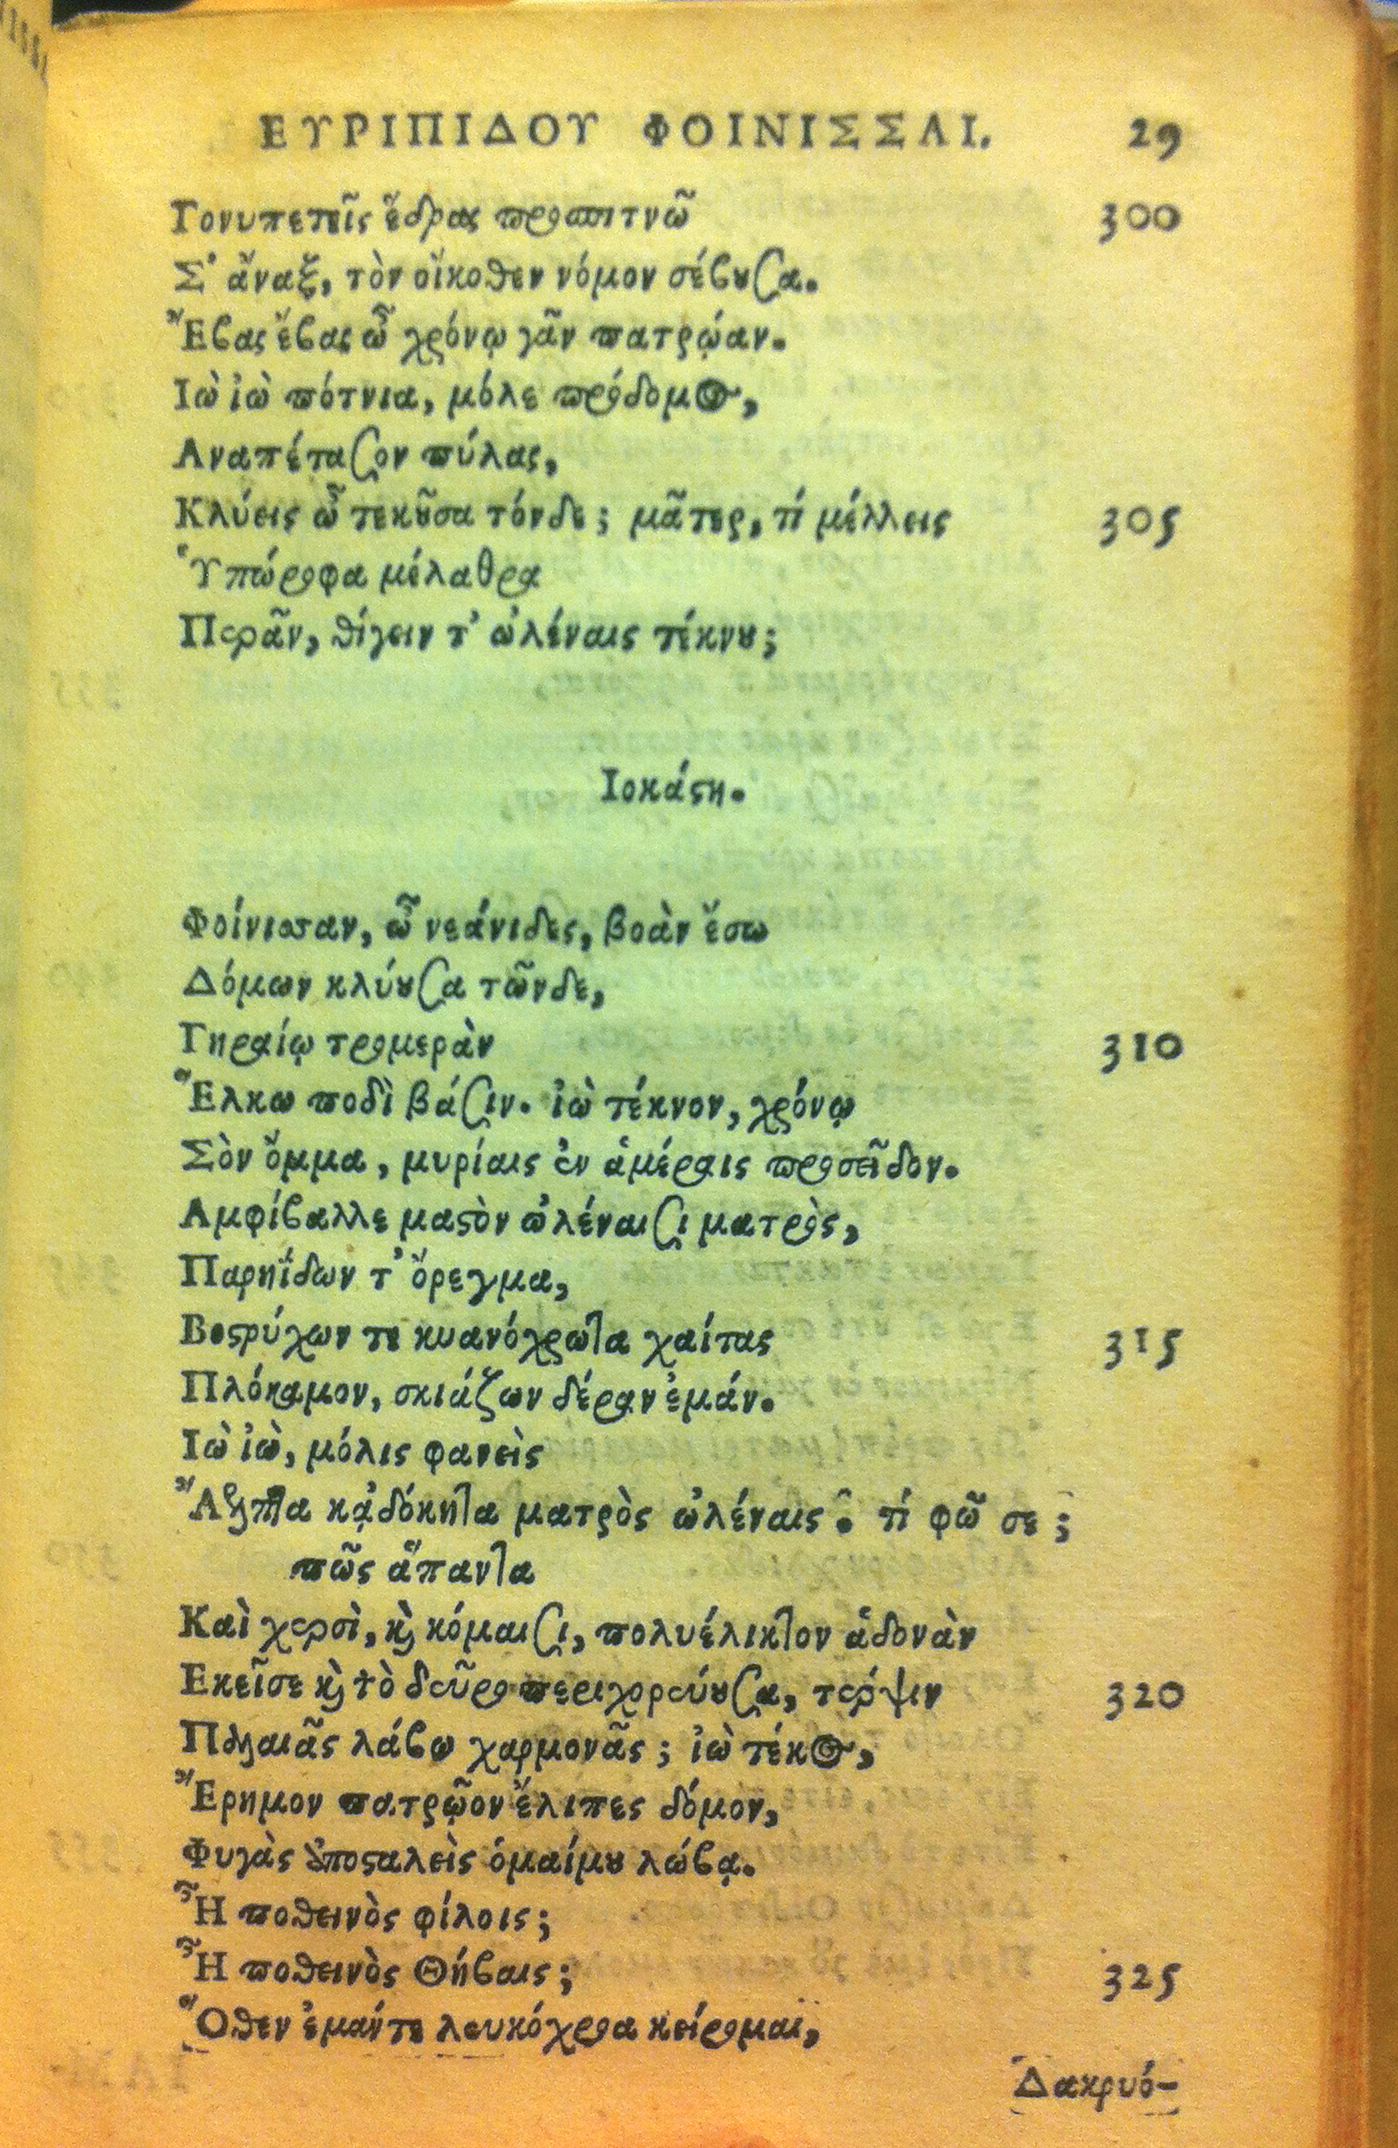 ΕΥΡΙΠΙΔΟΥ ΦΟΙΝΙΣΣΑΙ. 29
Γονυπετεῖς ἕδρας προσπιτνῶ 300
Σ' ἄναξ, τὸν οἴκοθεν νόμον σέβουσα.
Ἔβας ἔβας ὦ χρόνῳ γᾶν πατρῴαν.
Ιὼ ἰὼ πότνια, μόλε πρόδομος,
Αναπέτασον πύλας,
Κλύεις ὦ τεκοῦσα τόνδε; μᾶτερ, τί μέλλεις 305
Ὑπώροφα μέλαθρα
Περᾶν, θίγειν τ' ὠλέναις τέκνου;
Ιοκάστη.
Φοίνισσαν, ὦ νεάνιδες, βοὰν ἔσω
Δόμων κλύουσα τῶνδε,
Γηραίῳ τρομερὰν 310
Ἕλκω ποδὶ βάσιν. ἰὼ τέκνον, χρόνῳ
Σὸν ὄμμα, μυρίαις ἐν ἁμέραις προσεῖδον.
Αμφίβαλλε μαστὸν ὠλέναισι ματρὸς,
Παρηΐδων τ' ὄρεγμα,
Βοστρύχων τε κυανόχρωτα χαίτας 315
Πλόκαμον, σκιάζων δέραν ἐμάν.
Ιὼ ἰὼ, μόλις φανεὶς
Ἄελπτα κᾀδόκητα ματρὸς ὠλέναις. τί φῶ σε;
πῶς ἅπαντα
Καὶ χερσὶ, καὶ κόμαισι, πολυέλικτον ἁδονὰν
Εκεῖσε καὶ τὸ δεῦρο περιχορεύουσα, τέρψιν 320
Παλαιᾶς λάβω χαρμονᾶς; ἰὼ τέκος,
Ἔρημον πατρῷον ἔλιπες δόμον,
Φυγὰς ἀποσταλεὶς ὁμαίμου λώβᾳ.
Ἦ ποθεινὸς φίλοις;
Ἦ ποθεινὸς Θήβαις; 325
Ὅθεν ἐμάν τε λευκόχροα κείρομαι,
Δακρυό-